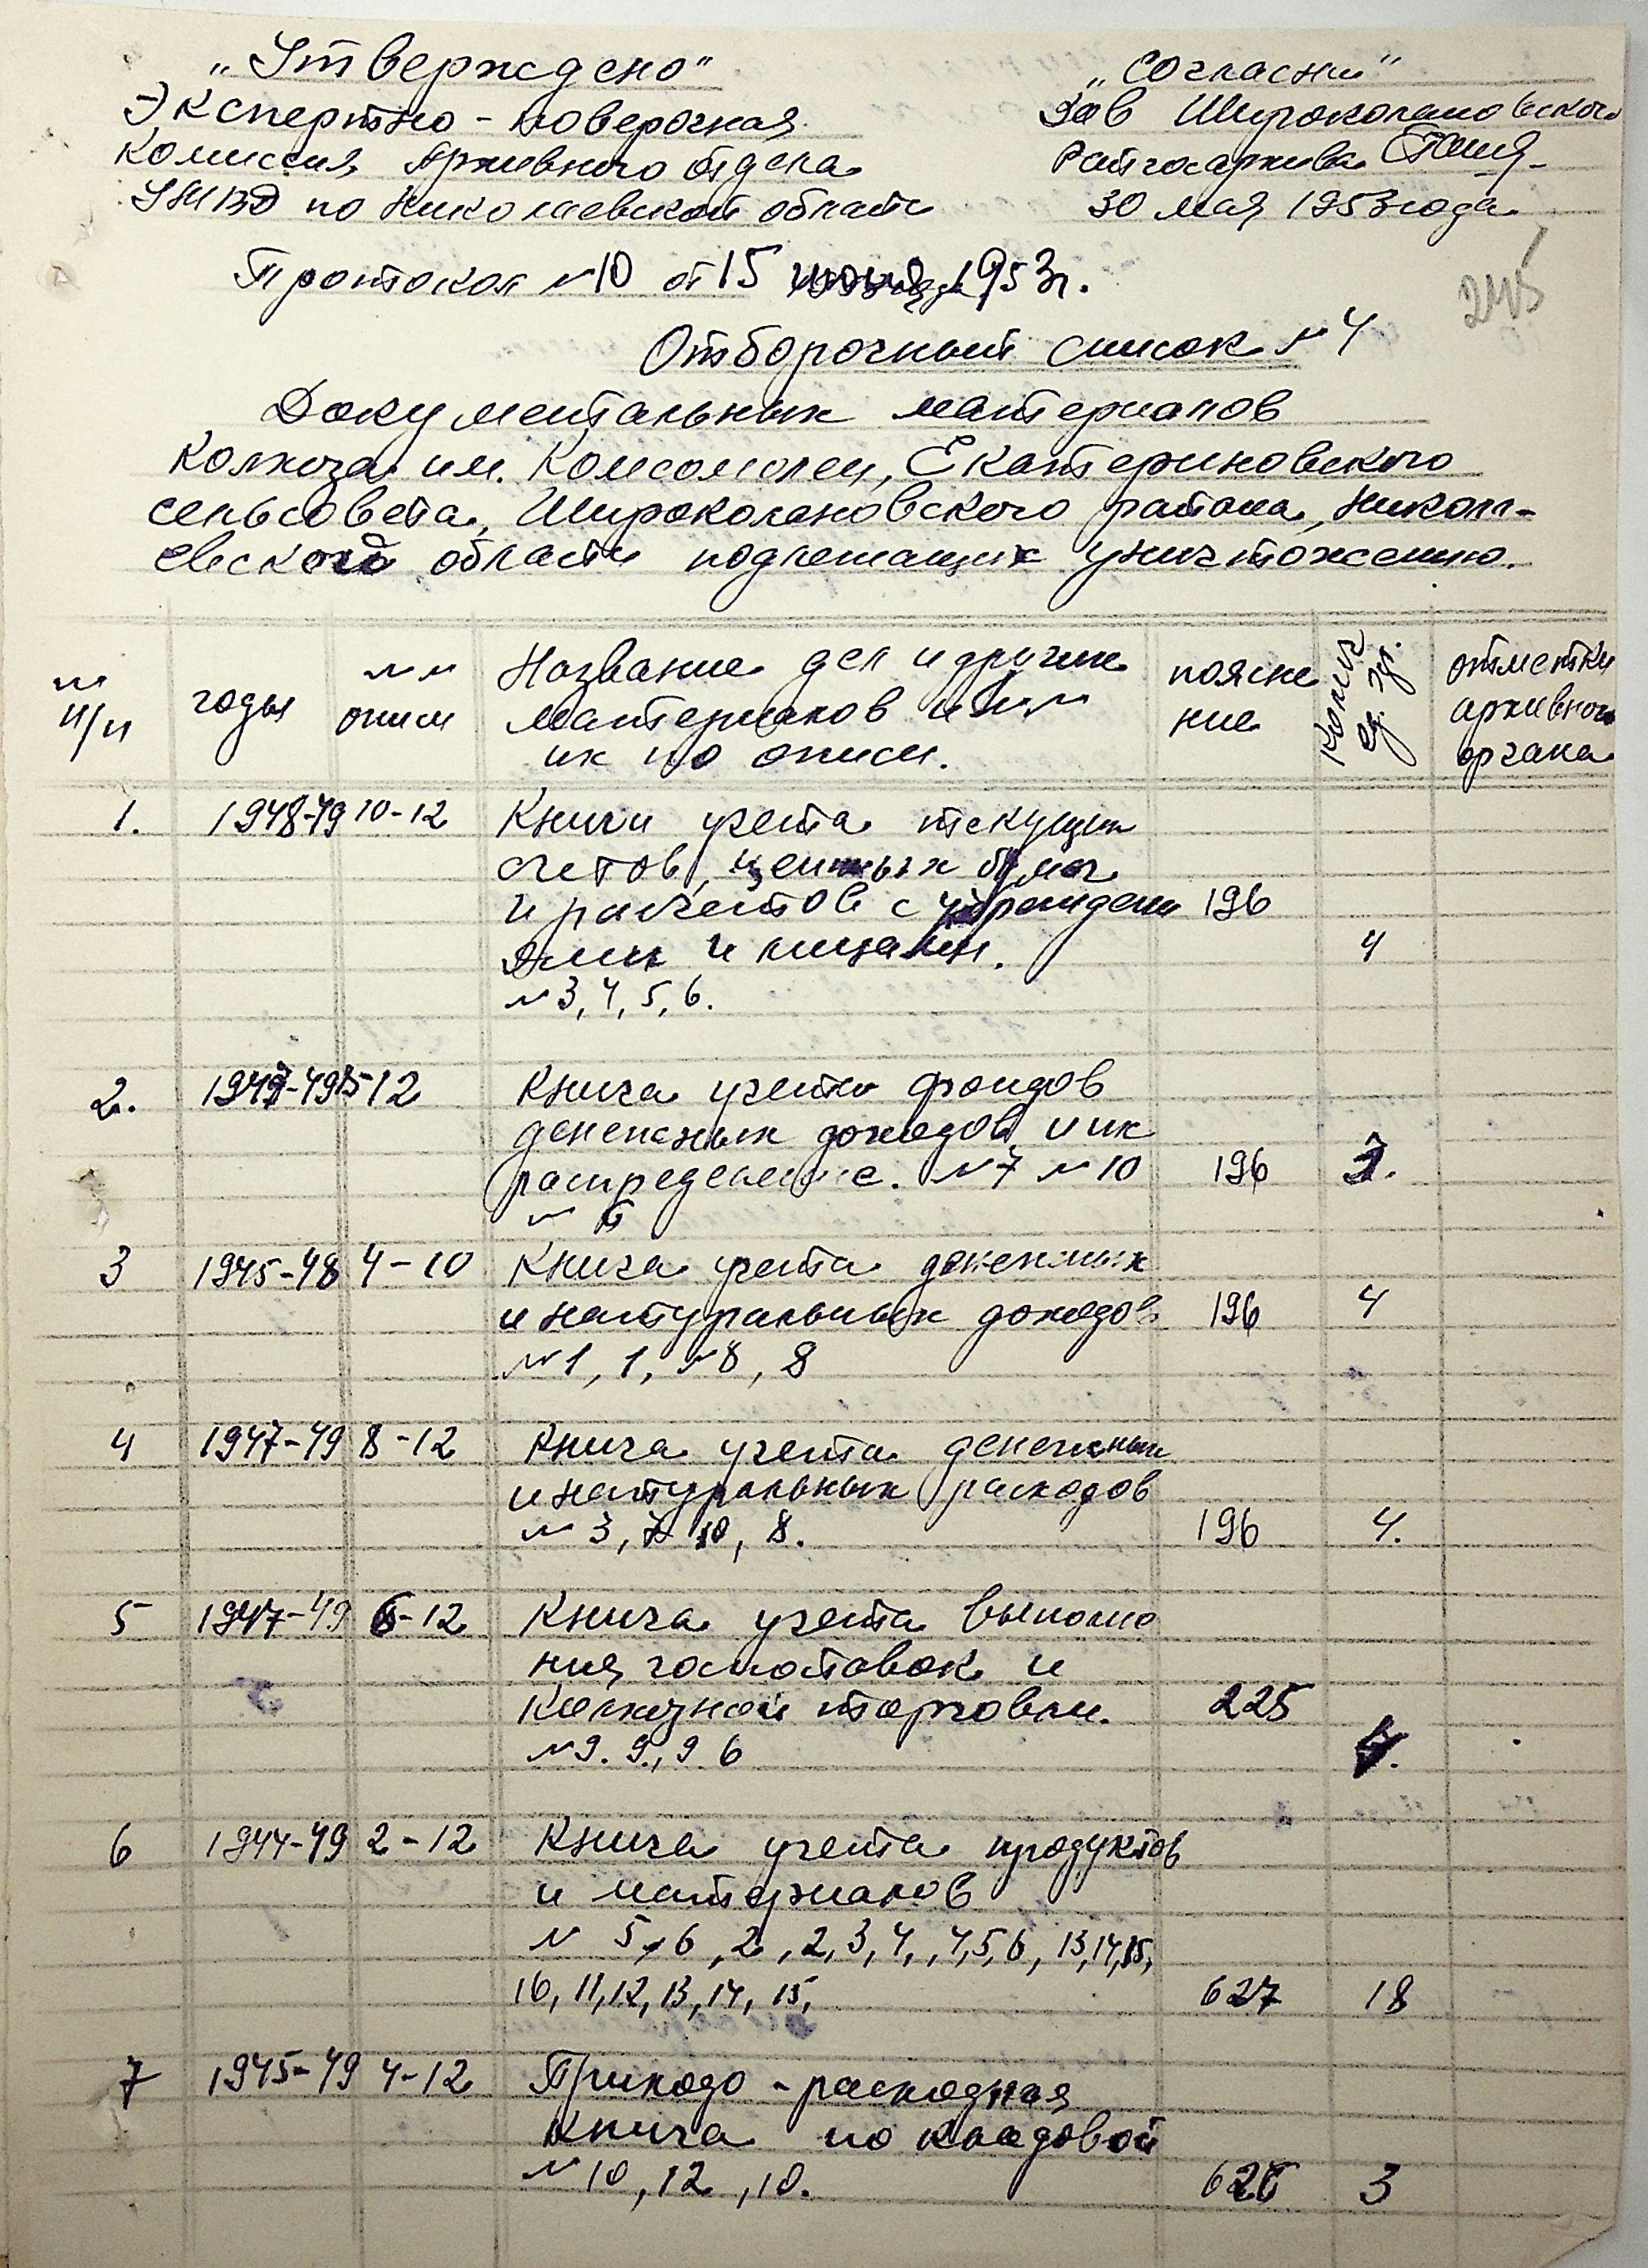 „Утверждено"
„Согласен"
Экспертно-поверочная
Зав Широколановского
Комиссия Архивного отдела
Райгосархива
УМВД по Николаевской области
30 мая 1953 года
Протокол №10 от 15 июня 1953г.
245
Отборочный список №4
Документальных материалов
колхоза им. Комсомолец, Екатериновского
сельсовета, Широколановского района, Никола-
евской области подлежащих уничтожению.
№№ п/п
годы
№№ описи
Название дел и других
материалов и №№
их по описи.
поясне
ние
Колич ед. хр.
отметки
архивного
органа
1. 1948-49 10-12 Книги учета текущих
счетов, ценных бумаг
и расчетов с учреждени 196
ями и лицами. 4
№ 3, 4, 5, 6.
2. 1947-49 12 Книга учета фондов
денежных доходов и их
распределение. №7 №10 196 3.
№
3 1945-48 4-10 Книга учета денежных
и натуральных доходов 196 4
№1, 1, №8, 8
4 1947-49 8-12 Книга учета денежных
и натуральных расходов
№ 3, 7 10, 8. 196 4.
5 1947-49 6-12 Книга учета выполне
ния госпоставок и
колхозной торговли. 225
№9. 9., 9. 6 4.
6 1944-49 2-12 Книга учета продуктов
и материалов
№ 5, 6, 2, 2, 3, 4, 4, 5, 6, 13, 14, 15,
10, 11, 12, 13, 14, 15, 627 18
7 1945-49 4-12 Приходо-расходная
книга по кладовой
№ 10, 12, 10. 3